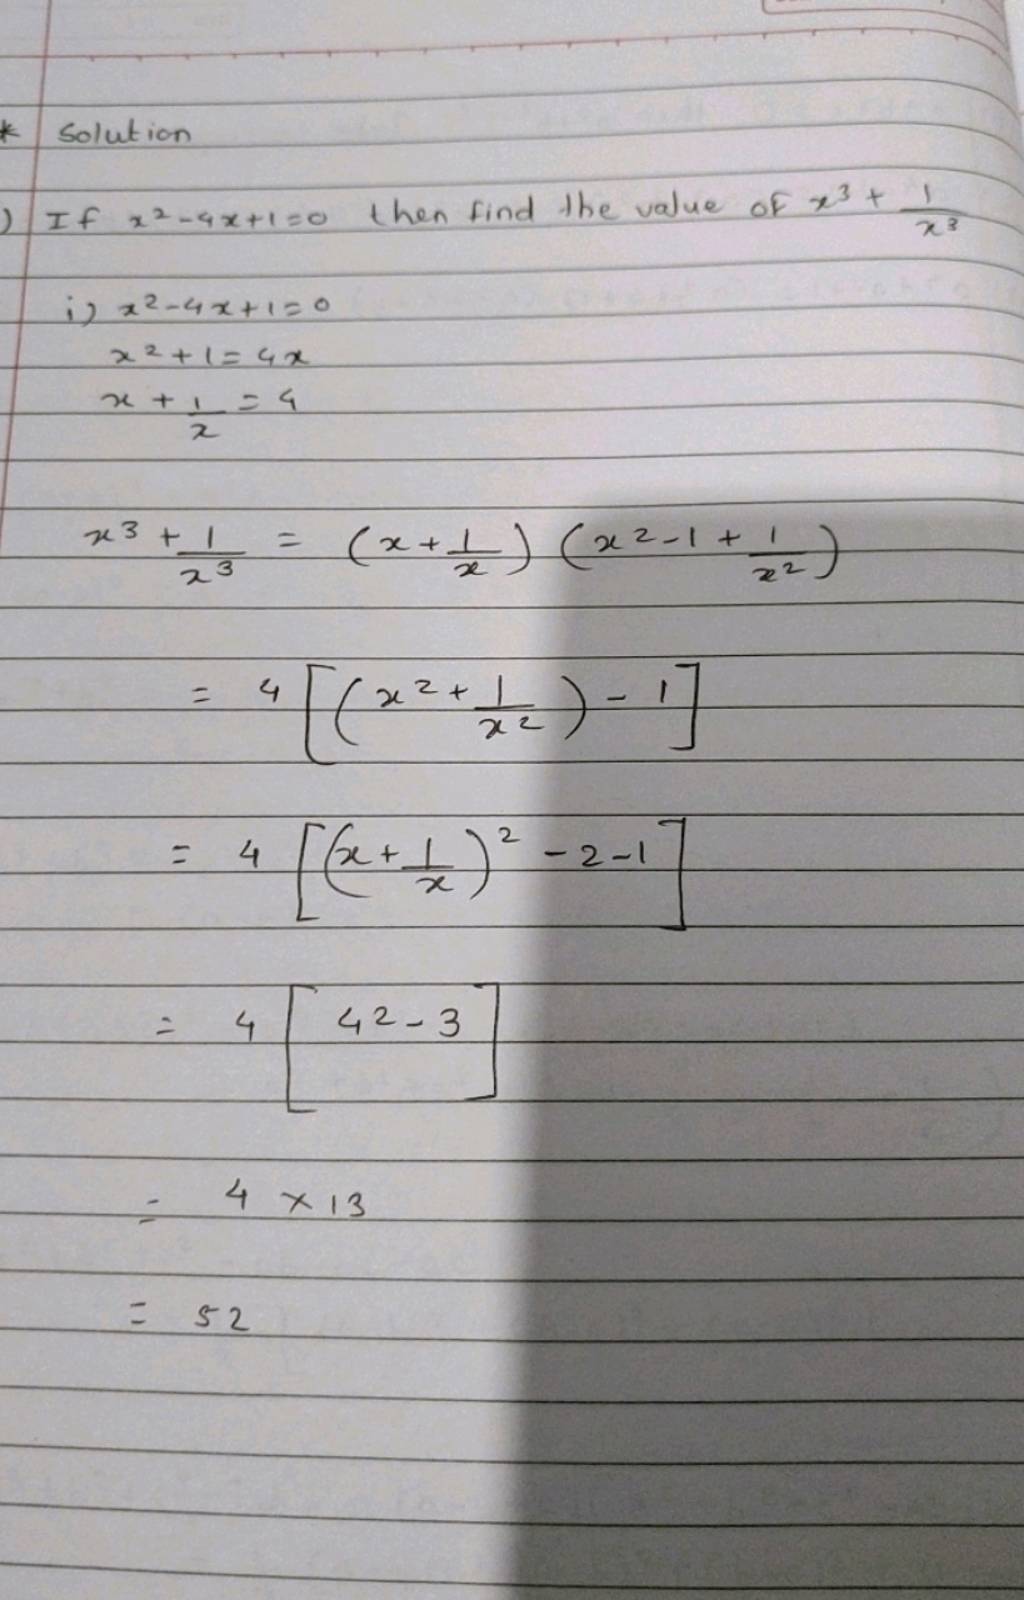 * Solution
) If x² - 4x + 1 = 0 then find the value of x³ + 1/x³
i) x² - 4x + 1 = 0
x² + 1 = 4x
x + 1/x = 4
x³ + 1/x³ = (x + 1/x) (x² - 1 + 1/x²)
= 4 [(x² + 1/x²) - 1]
= 4 [(x + 1/x)² - 2 - 1]
= 4 [4² - 3]
= 4 × 13
= 52